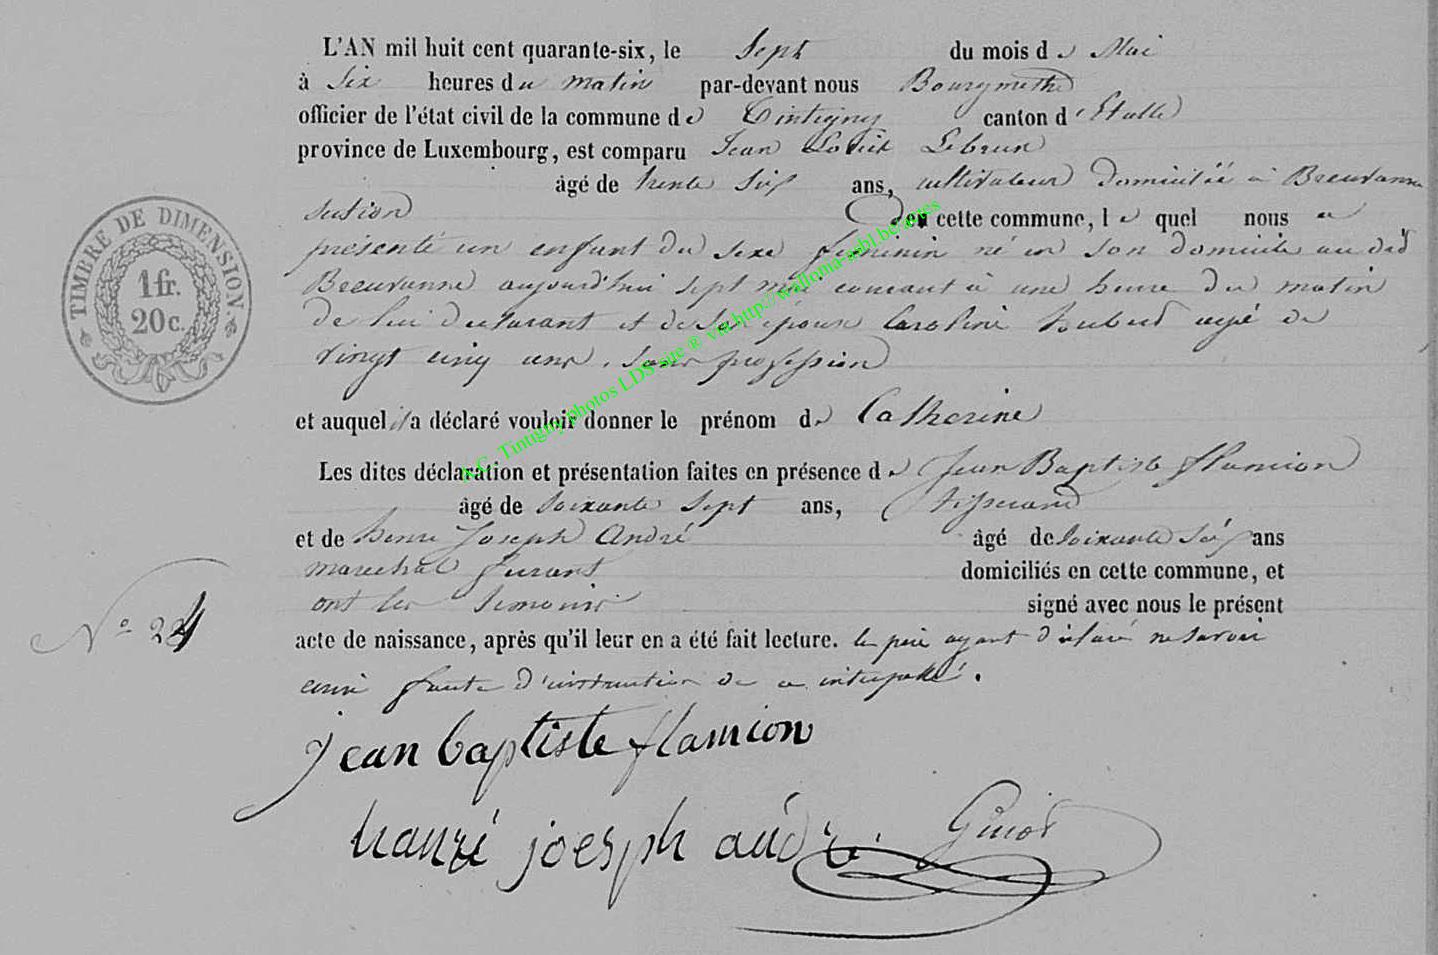 L'AN mil huit cent quarante-six, le Sept du mois de Mai
à Six heures du matin par-devant nous Bourgmestre
officier de l'état civil de la commune de Tintigny canton d'Etalle
province de Luxembourg, est comparu Jean Louis Lebrun
âgé de trente Six ans, cultivateur domicilié à Breuvanne
section de cette commune, lequel nous a
présenté un enfant du sexe féminin né en son domicile au dit
Breuvanne aujourd'hui sept mai courant à une heure du matin
de lui déclarant et de son épouse Caroline hubert agé de
vingt cinq ans, sans profession
et auquel il a déclaré vouloir donner le prénom de Catherine
Les dites déclaration et présentation faites en présence de Jean Baptiste flamion
âgé de soixante sept ans, tisserand
et de henri Joseph André âgé de soixante Six ans
marechal ferrant domiciliés en cette commune, et
ont les temoins signé avec nous le présent
acte de naissance, après qu'il leur en a été fait lecture. le père ayant déclaré ne savoir
faute d'instruction de ce interpellé.
N° 24
jean baptiste flamion
hanri joesph andré
TIMBRE DE DIMENSION.
1 fr.
20 c.
A.C. Tintigny photos LDS site ® via http://wallonia-asbl.be/actes